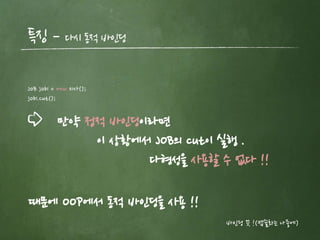 특징 - 다시 동적 바인딩
JOB job1 = new 의사();
job1.cut();
만약 정적 바인딩이라면
이 상황에서 JOB의 cut이 실행 .
다형성을 사용할 수 없다 !!
때문에 OOP에서 동적 바인딩을 사용 !!
바인딩 끗 !(캡슐화는 나중에)